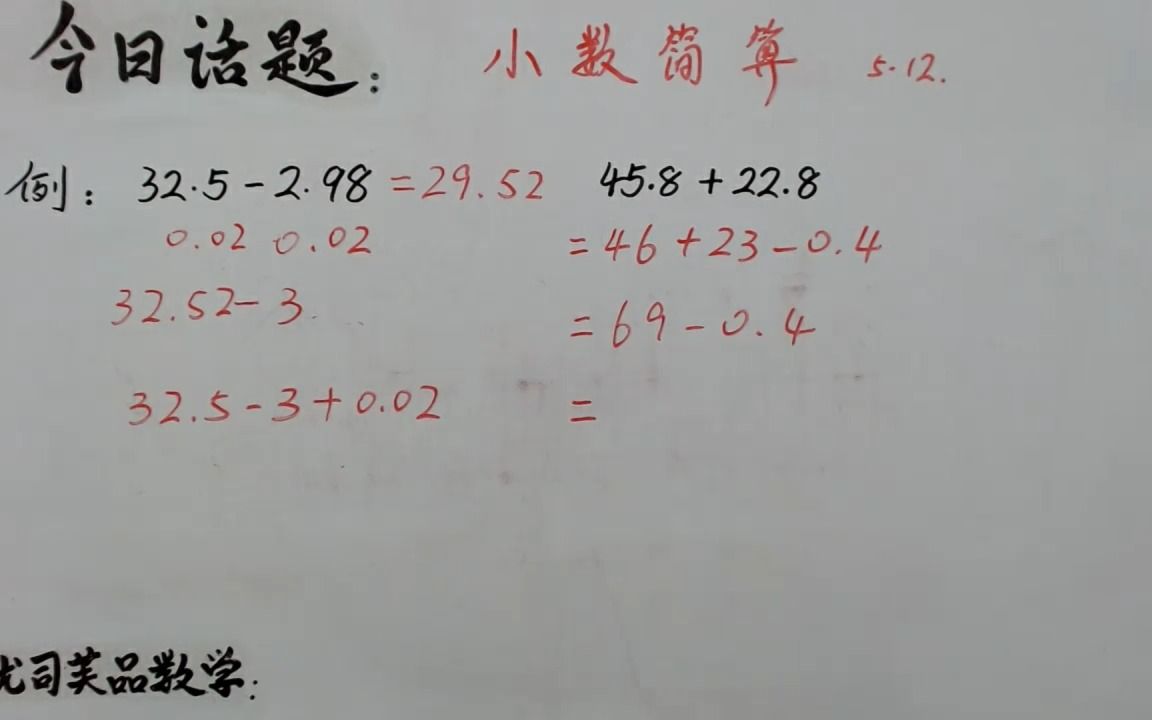 今日话题: 小数简算 5.12.
例: 32.5-2.98=29.52 45.8+22.8
0.02 0.02 =46+23-0.4
32.52-3 =69-0.4
32.5-3+0.02 =
优司芙品数学: